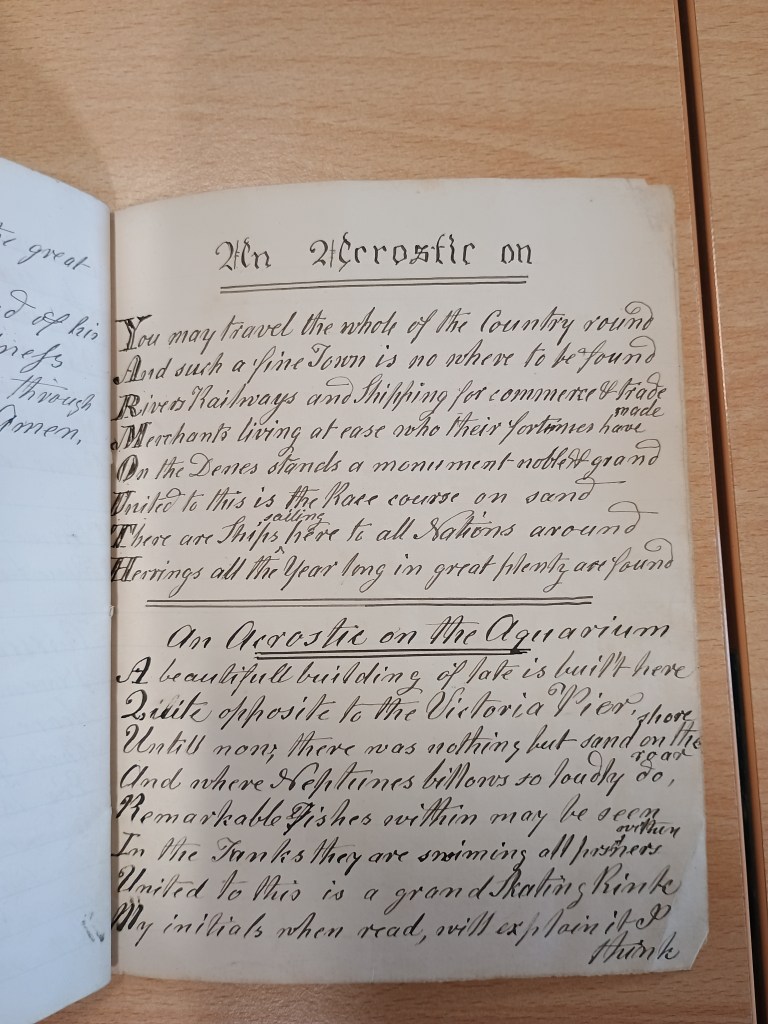 the great
d of his
ness
through
Amen.
An Acrostic on
You may travel the whole of the Country round
And such a fine Town is no where to be found
Rivers Railways and Shipping for commerce & trade
Merchants living at ease who their fortunes have made
On the Denes stands a monument noble & grand
United to this is the Race course on sand
There are Ships sailing here to all Nations around
Herrings all the Year long in great plenty are found
An Acrostic on the Aquarium
A beautifull building of late is built here
Quite opposite to the Victoria Pier,
Untill now, there was nothing but sand on the shore
And where Neptunes billows so loudly do, roar
Remarkable Fishes within may be seen
In the Tanks they are swiming all within
United to this is a grand Skating Rink
My initials when read, will explain it I
think